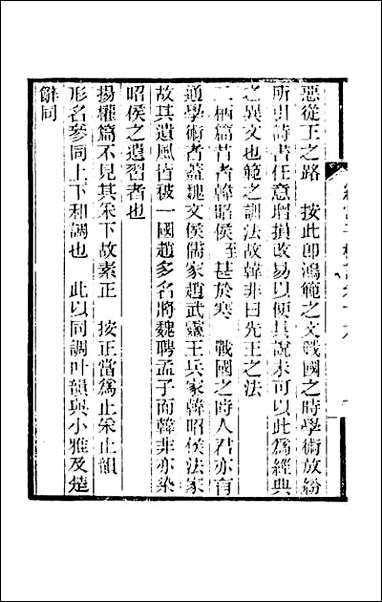 惡從王之路　按此即鴻範之文戰國之時學術放紛
所引詩書任意增損改易以便其說未可以此爲經典
之異文也範之訓法故韓非曰先王之法
二柄篇昔者韓昭侯至甚於寒　戰國之時人君亦有
通學術者蓋魏文侯儒家趙武靈王兵家韓昭侯法家
故其遺風皆被一國趙多名將魏聘孟子而韓非亦染
昭侯之遺習者也
揚權篇不見其采下故素正　按正當爲止采止韻
形名參同上下和調也　此以同調叶韻與小雅及楚
辭同